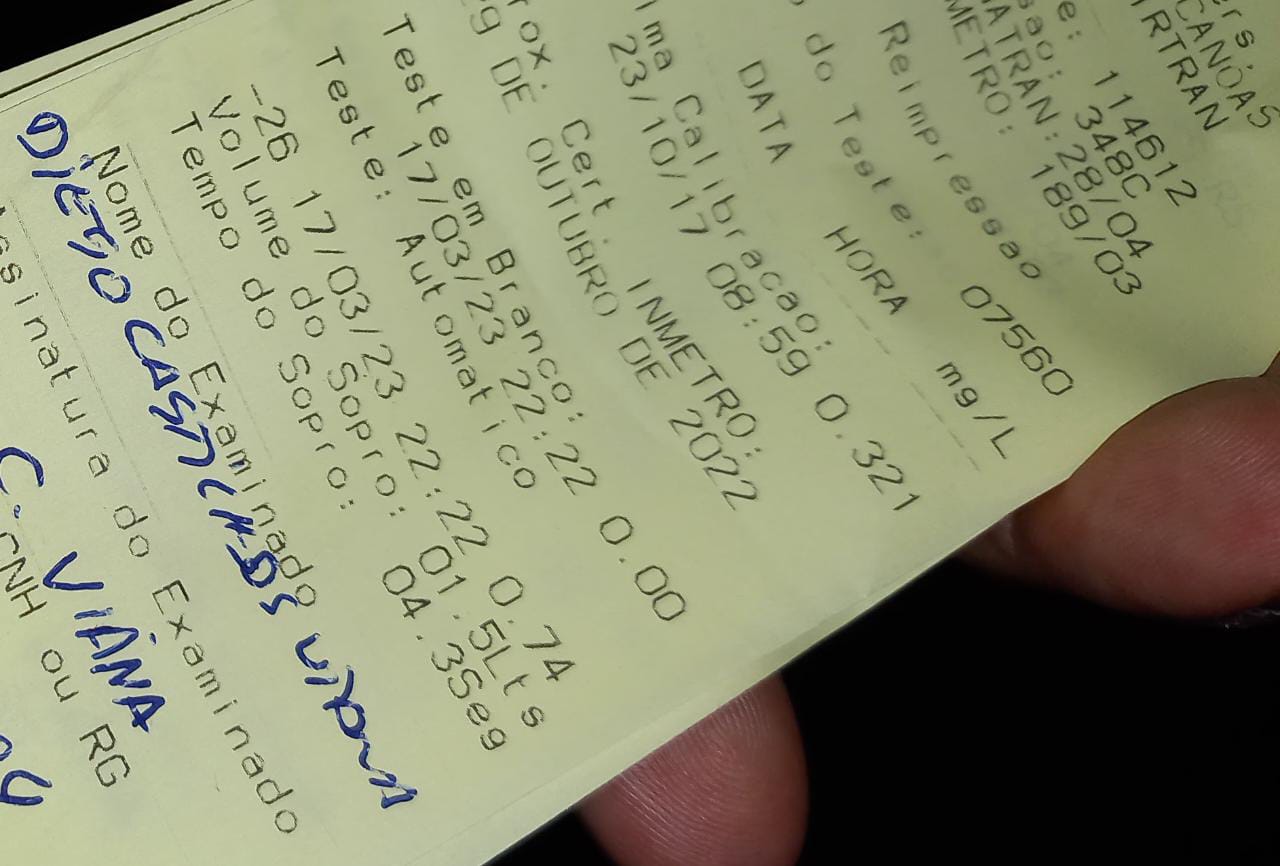 ers.
CANOAS
RTRAN
e: 114612
sao: 348C
ATRAN:28/04
METRO: 189/03
Reimpressao
do Teste: 07560
DATA HORA mg/L
ima Calibracao:
23/10/17 08:59 0.321
rox. Cert. INMETRO:
DE OUTUBRO DE 2022
Teste em Branco:
17/03/23 22:22 0.00
Teste: Automatico
-26 17/03/23 22:22 0.74
Volume do Sopro: 01.5Lts
Tempo do Sopro: 04.3Seg
Nome do Examinado
DIEGO CASTILHOS VIANA
ssinatura do Examinado
C. VIANA
CNH ou RG